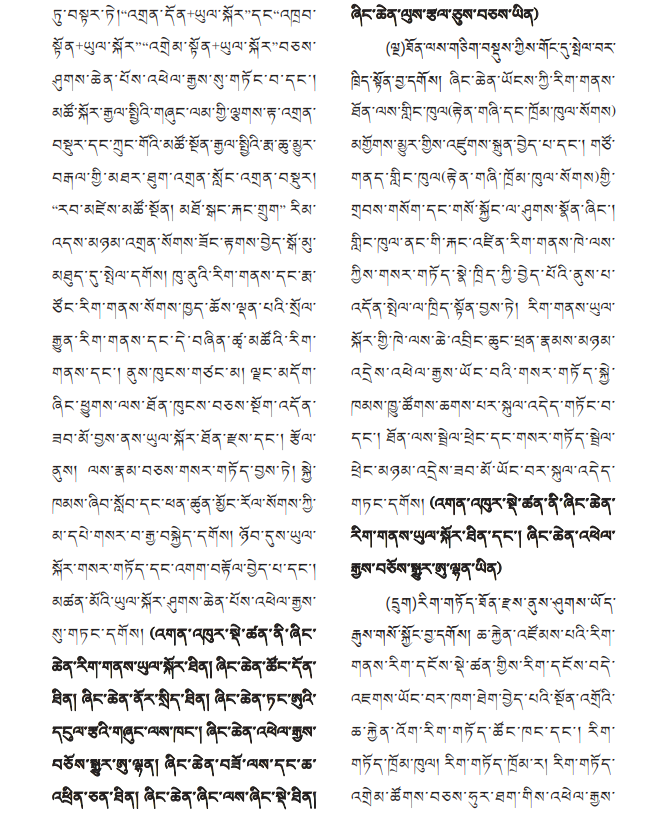 ཏུ་བསྟར་ཏེ།“འགྲན་དོན+ཡུལ་སྐོར”དང“འཁྲབ་
སྟོན+ཡུལ་སྐོར”“འགྲེམ་སྟོན+ཡུལ་སྐོར”བཅས་
ཤུགས་ཆེན་པོས་འཕེལ་རྒྱས་སུ་གཏོང་བ་དང་།
མཚོ་སྐོར་རྒྱལ་སྤྱིའི་གཞུང་ལམ་གྱི་ལྕགས་རྟ་འགྲན་
བསྡུར་དང་ཀྲུང་གོའི་མཚོ་སྔོན་རྒྱལ་སྤྱིའི་རྨ་ཆུ་མྱུར་
བརྒལ་གྱི་མཐར་ཐུག་འགྲན་སློང་འགྲན་བསྡུར།
“རབ་མཛེས་མཚོ་སྔོན། མཐོ་སྒང་རྐང་གྲུག” རིམ་
འདས་མཉམ་འགྲན་སོགས་ཟོང་རྟགས་བྱེད་སྒོ་མུ་
མཐུད་དུ་སྤེལ་དགོས། ཁུ་ནུའི་རིག་གནས་དང་རྨ་
ཙོང་རིག་གནས་སོགས་ཁྱད་ཆོས་ལྡན་པའི་སྲོལ་
རྒྱུན་རིག་གནས་དང་དེ་བཞིན་ཚྭ་མཚོའི་རིག་
གནས་དང་། ནུས་ཁུངས་གཙང་མ། ལྗང་མདོག་
ཞིང་ཕྱུགས་ལས་ཐོན་ཁུངས་བཅས་སྔོག་འདོན་
ཟབ་མོ་བྱས་ནས་ཡུལ་སྐོར་ཐོན་རྫས་དང་། རྩོལ་
ནུས། ལས་རྣམ་བཅས་གསར་གཏོད་བྱས་ཏེ། སྐྱེ་
ཁམས་ཞིབ་སློབ་དང་ཕན་ཚུན་མྱོང་རོལ་སོགས་ཀྱི་
མ་དཔེ་གསར་བ་རྒྱ་བསྐྱེད་དགོས། ཉོབ་དུས་ཡུལ་
སྐོར་གསར་གཏོད་དང་འགག་བརྟོལ་བྱེད་པ་དང་།
མཚན་མོའི་ཡུལ་སྐོར་ཤུགས་ཆེན་པོས་འཕེལ་རྒྱས་
སུ་གཏང་དགོས། (འགན་འཁུར་སྡེ་ཚན་ནི་ཞིང་
ཆེན་རིག་གནས་ཡུལ་སྐོར་ཐིན། ཞིང་ཆེན་ཚོང་དོན་
ཐིན། ཞིང་ཆེན་ནོར་སྲིད་ཐིན། ཞིང་ཆེན་ཏང་ཨུའི་
དངུལ་རྩའི་གཞུང་ལས་ཁང་། ཞིང་ཆེན་འཕེལ་རྒྱས་
བཅོས་སྒྱུར་ཨུ་ལྷན། ཞིང་ཆེན་བཟོ་ལས་དང་ཆ་
འཕྲིན་ཅན་ཐིན། ཞིང་ཆེན་ཞིང་ལས་ཞིང་སྡེ་ཐིན།
ཞིང་ཆེན་ལུས་རྩལ་ཅུས་བཅས་ཡིན)
(ལྔ)ཐོན་ལས་གཅིག་བསྡུས་ཀྱིས་གོང་དུ་སྤེལ་བར་
ཁྲིད་སྟོན་བྱ་དགོས། ཞིང་ཆེན་ཡོངས་ཀྱི་རིག་གནས་
ཐོན་ལས་གླིང་ཁུལ(རྟེན་གཞི་དང་ཁྲོམ་ཁུལ་སོགས)
མགྱོགས་མྱུར་གྱིས་འཛུགས་སྐྲུན་བྱེད་པ་དང་། གཙོ་
གནད་གླིང་ཁུལ(རྟེན་གཞི་ཁྲོམ་ཁུལ་སོགས)གྱི་
གྲབས་གསོག་དང་གསོ་སྐྱོང་ལ་ཤུགས་སྣོན་ཞིང་།
གླིང་ཁུལ་ནང་གི་རྐང་འཛིན་རིག་གནས་ཁེ་ལས་
ཀྱིས་གསར་གཏོད་སྣེ་ཁྲིད་ཀྱི་བྱེད་པོའི་ནུས་པ་
འདོན་སྤེལ་ལ་ཁྲིད་སྟོན་བྱས་ཏེ། རིག་གནས་ཡུལ་
སྐོར་གྱི་ཁེ་ལས་ཆེ་འབྲིང་ཆུང་ཕྲན་རྣམས་མཉམ་
འདྲེས་འཕེལ་རྒྱས་ཡོང་བའི་གསར་གཏོད་སྐྱེ་
ཁམས་ཁྱུ་ཚོགས་ཆགས་པར་སྐུལ་འདེད་གཏོང་བ་
དང་། ཐོན་ལས་སྦྲེལ་ཕྲེང་དང་གསར་གཏོད་སྦྲེལ་
ཕྲེང་མཉམ་འདྲེས་ཟབ་མོ་ཡོང་བར་སྐུལ་འདེད་
གཏང་དགོས། (འགན་འཁུར་སྡེ་ཚན་ནི་ཞིང་ཆེན་
རིག་གནས་ཡུལ་སྐོར་ཐིན་དང་། ཞིང་ཆེན་འཕེལ་
རྒྱས་བཅོས་སྒྱུར་ཨུ་ལྷན་ཡིན)
(དྲུག)རིག་གཏོད་ཐོན་རྫས་ནུས་ཤུགས་ཡོད་
རྒུས་གསོ་སྐྱོང་བྱ་དགོས། ཆ་རྐྱེན་འཛོམས་པའི་རིག་
གནས་རིག་དངོས་སྡེ་ཚན་གྱིས་རིག་དངོས་བདེ་
འཇགས་ཡོང་བར་ཁག་ཐེག་བྱེད་པའི་སྔོན་འགྲོའི་
ཆ་རྐྱེན་འོག་རིག་གཏོད་ཚོང་ཁང་དང་། རིག་
གཏོད་ཁྲོམ་ཁུལ། རིག་གཏོད་ཁྲོམ་ར། རིག་གཏོད་
འགྲེམ་ཚོགས་བཅས་ཧུར་ཐག་གིས་འཕེལ་རྒྱས་